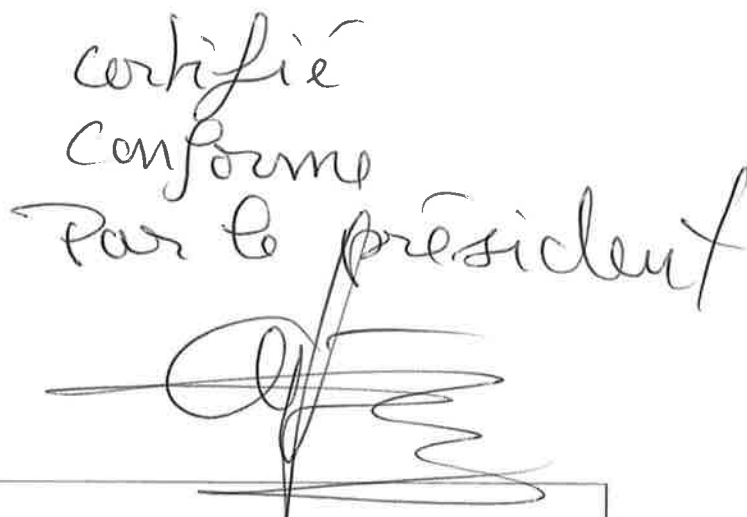 certifié
conforme
Par le président